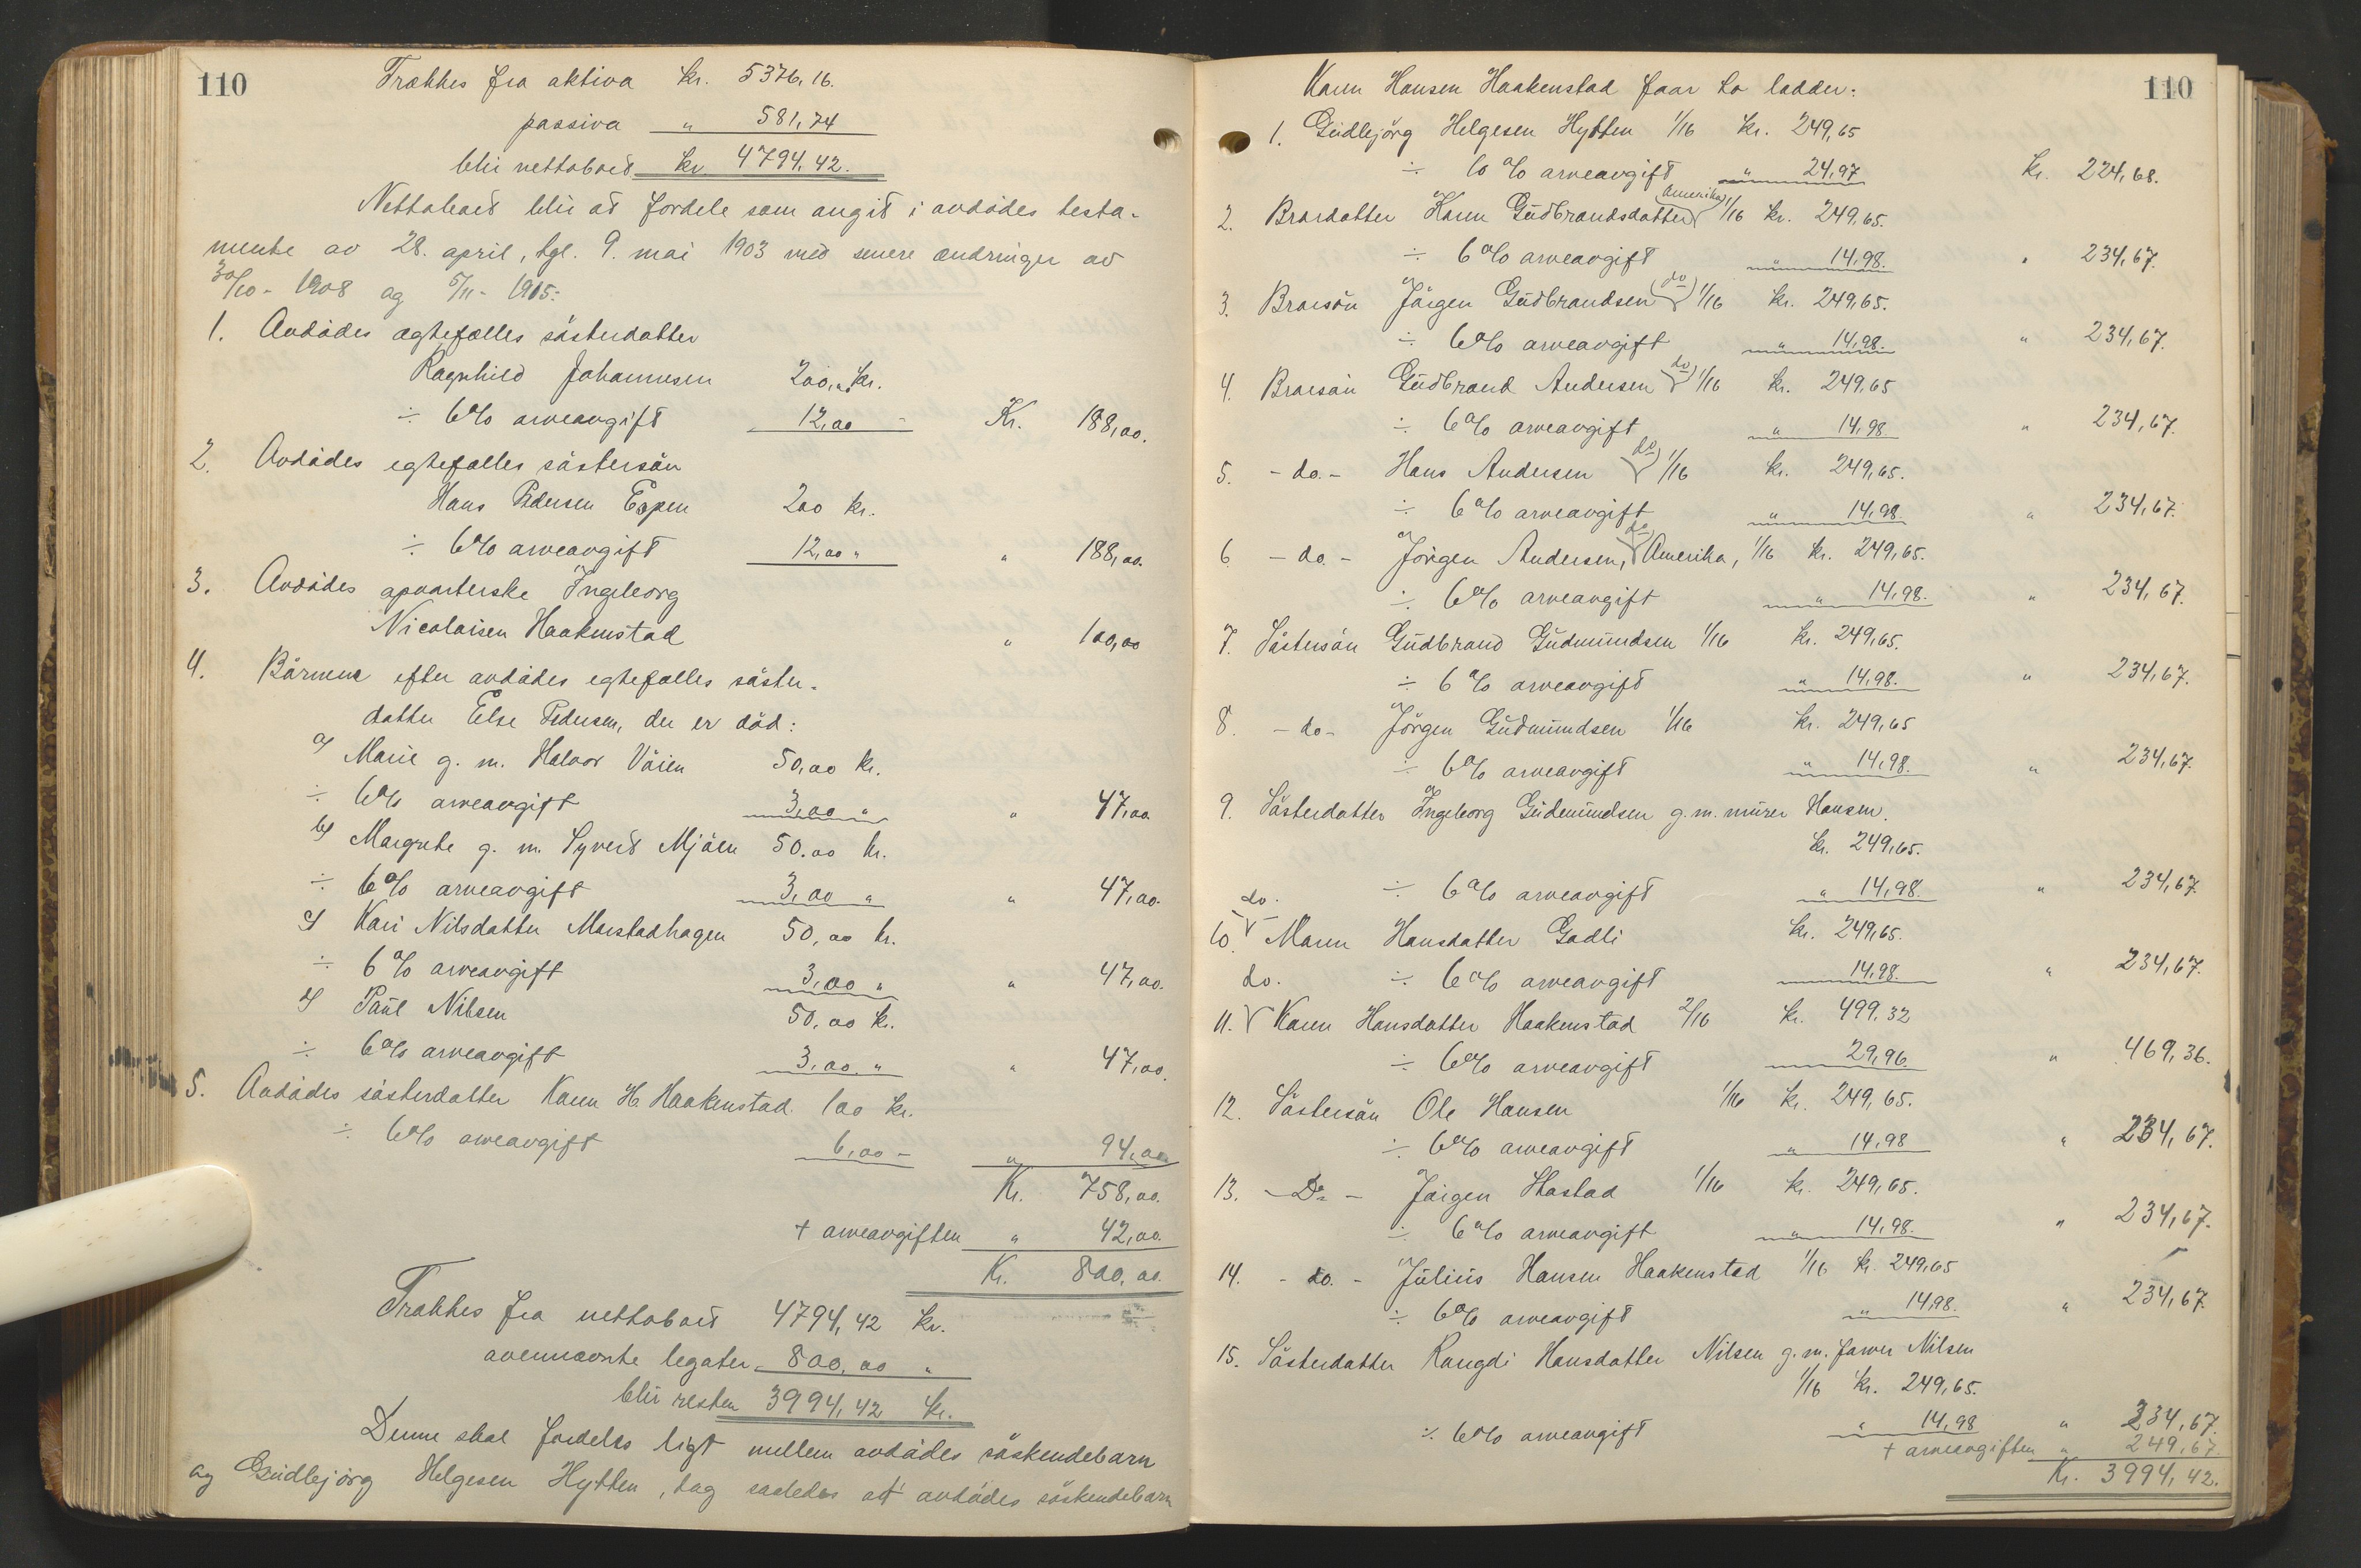 110
Trækkes fra aktiva kr. 5376,16.
passiva " 581,74
blir nettobeh. kr 4794,42.
Nettobeh. blir at fordele som angit i avdødes testa-
mente av 28. april, tgl. 9. mai 1903 med senere ændringer av
30/10 - 1908 og 5/11 - 1915:
1. Avdødes ægtefælles søsterdatter
Ragnhild Johannesen 200,- kr.
÷ 6% arveavgift 12,00 - Kr. 188,00.
2. Avdødes egtefælles søstersøn
Hans Pedersen Espen 200 kr.
÷ 6% arveavgift 12,00 " " 188,00.
3. Avdødes opvarterske Ingeborg
Nicolaisen Haakenstad " 100,00
4. Børnene efter avdødes egtefælles søster-
datter Else Pedersen, der er død:
a) Marie g. m. Halvor Vøien 50,00 kr.
÷ 6% arveavgift 3,00 " " 47,00.
b) Margrete g. m. Syvert Mjøen 50.00 kr.
÷ 6% arveavgift 3,00 " " 47,00.
c) Kari Nilsdatter Marstadhagen 50,00 kr.
÷ 6% arveavgift 3,00 " " 47,00.
d) Paul Nilsen 50,00 kr.
÷ 6% arveavgift 3,00. " " 47,00.
5. Avdødes søsterdatter Karen H. Haakenstad. 100 kr.
÷ 6% arveavgift 6,00 - " 94,00
Kr. 758,00.
+ arveavgiften " 42,00.
Kr. 800,00.
Trækkes fra nettobeh. 4794,42 kr.
ovennævnte legater 800,00 "
blir resten 3994,42 kr.
Denne skal fordeles ligt mellem avdødes søskendebarn
og Gudbjørg Helgesen Hytten, dog saaledes at avdødes søskendebarn
110
Karen Hansen Haakenstad faar to lodder:
1. Gudbjørg Helgesen Hytten 1/16 kr. 249,65
÷ 10 % arveavgift " 24,97 kr. 224,68.
2. Brordatter Karen Gudbrandsdatter (Amerika) 1/16 kr. 249,65.
÷ 6% arveavgift " 14,98. " 234,67.
3. Brorsøn Jørgen Gudbrandsen (do) 1/16 kr. 249,65.
÷ 6% arveavgift " 14,98. " 234,67.
4. Brorsøn Gudbrand Andersen (do) 1/16 kr. 249,65
÷ 6% arveavgift " 14,98 " 234,67.
5. - do. - Hans Andersen (do) 1/16 kr. 249,65.
÷ 6% arveavgift " 14,98 " 234,67.
6. - do. - Jørgen Andersen, (do) Amerika, 1/16 kr. 249,65.
÷ 6% arveavgift " 14,98. " 234,67.
7. Søstersøn Gudbrand Gudmundsen 1/16 kr. 249,65.
÷ 6% arveavgift " 14,98. " 234,67.
8. - do - Jörgen Gudmundsen 1/16 kr. 249,65
÷ 6% arveavgift " 14,98. " 234,67.
9. Søsterdatter Ingeborg Gudmundsen g. m. murer Hansen.
kr. 249,65.
÷ 6% arveavgift " 14,98. " 234,67.
do.
10. Maren Hansdatter Gadli kr. 249,65.
÷ 6% arveavgift 14,98. " 234,67.
do.
11. Karen Hansdatter Haakenstad 2/16 kr. 499,32
÷ 6% arveavgift 29,96. " 469,36.
12. Søstersøn Ole Hansen 1/16 kr. 249,65.
÷ 6% arveavgift " 14,98 " 234,67.
13. - Do - Jørgen Hastad 1/16 kr. 249,65.
÷ 6% arveavgift " 14,98. " 234,67.
14. - do. - Julius Hansen Haakenstad 1/16 kr. 249,65
÷ 6% arveavgift " 14,98. " 234,67.
15. Søsterdatter Rangdi Hansdatter Nilsen g. m. farver Nilsen
1/16 kr. 249,65.
÷ 6% arveavgift " 14,98 " 234,67.
+ arveavgiften " 249,67
Kr. 3994,42.